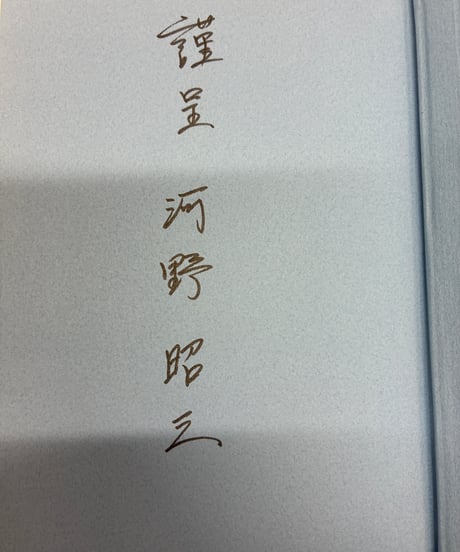 謹呈 河野昭三